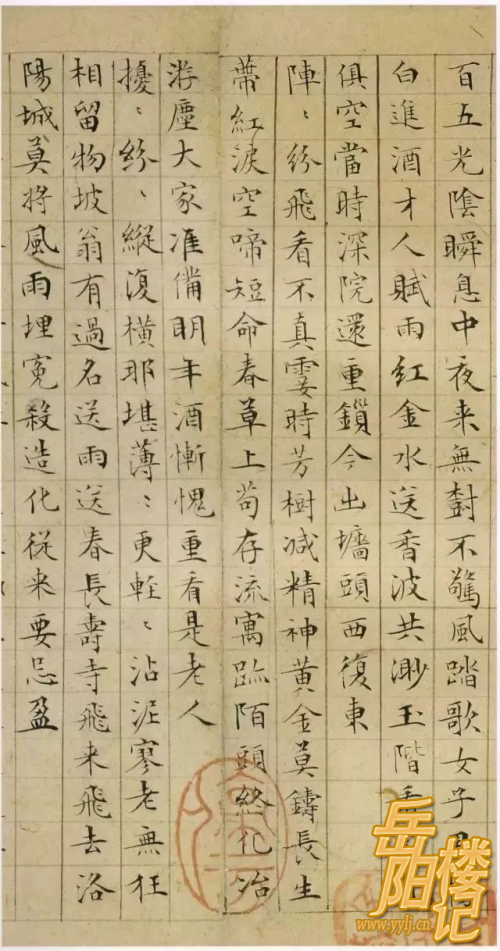 百五光陰瞬息中夜来無樹不驚風踏歌女子
白進酒才人賦雨紅金水送香波共渺玉階看
俱空當時深院還重鎖今出墻頭西復東
陣〻紛飛看不真霎時芳樹減精神黄金莫鑄長生
蒂紅淚空啼短命春草上苟存流寓跡陌頭終化冶
游塵大家准備明年酒慚愧重看是老人
擾〻紛〻縱復橫那堪薄〻更輕〻沾泥寥老無狂
相留物坡翁有過名送雨送春長壽寺飛来飛去洛
陽城莫將風雨埋寃殺造化從来要忌盈
岳阳楼记
www.yylj.cn